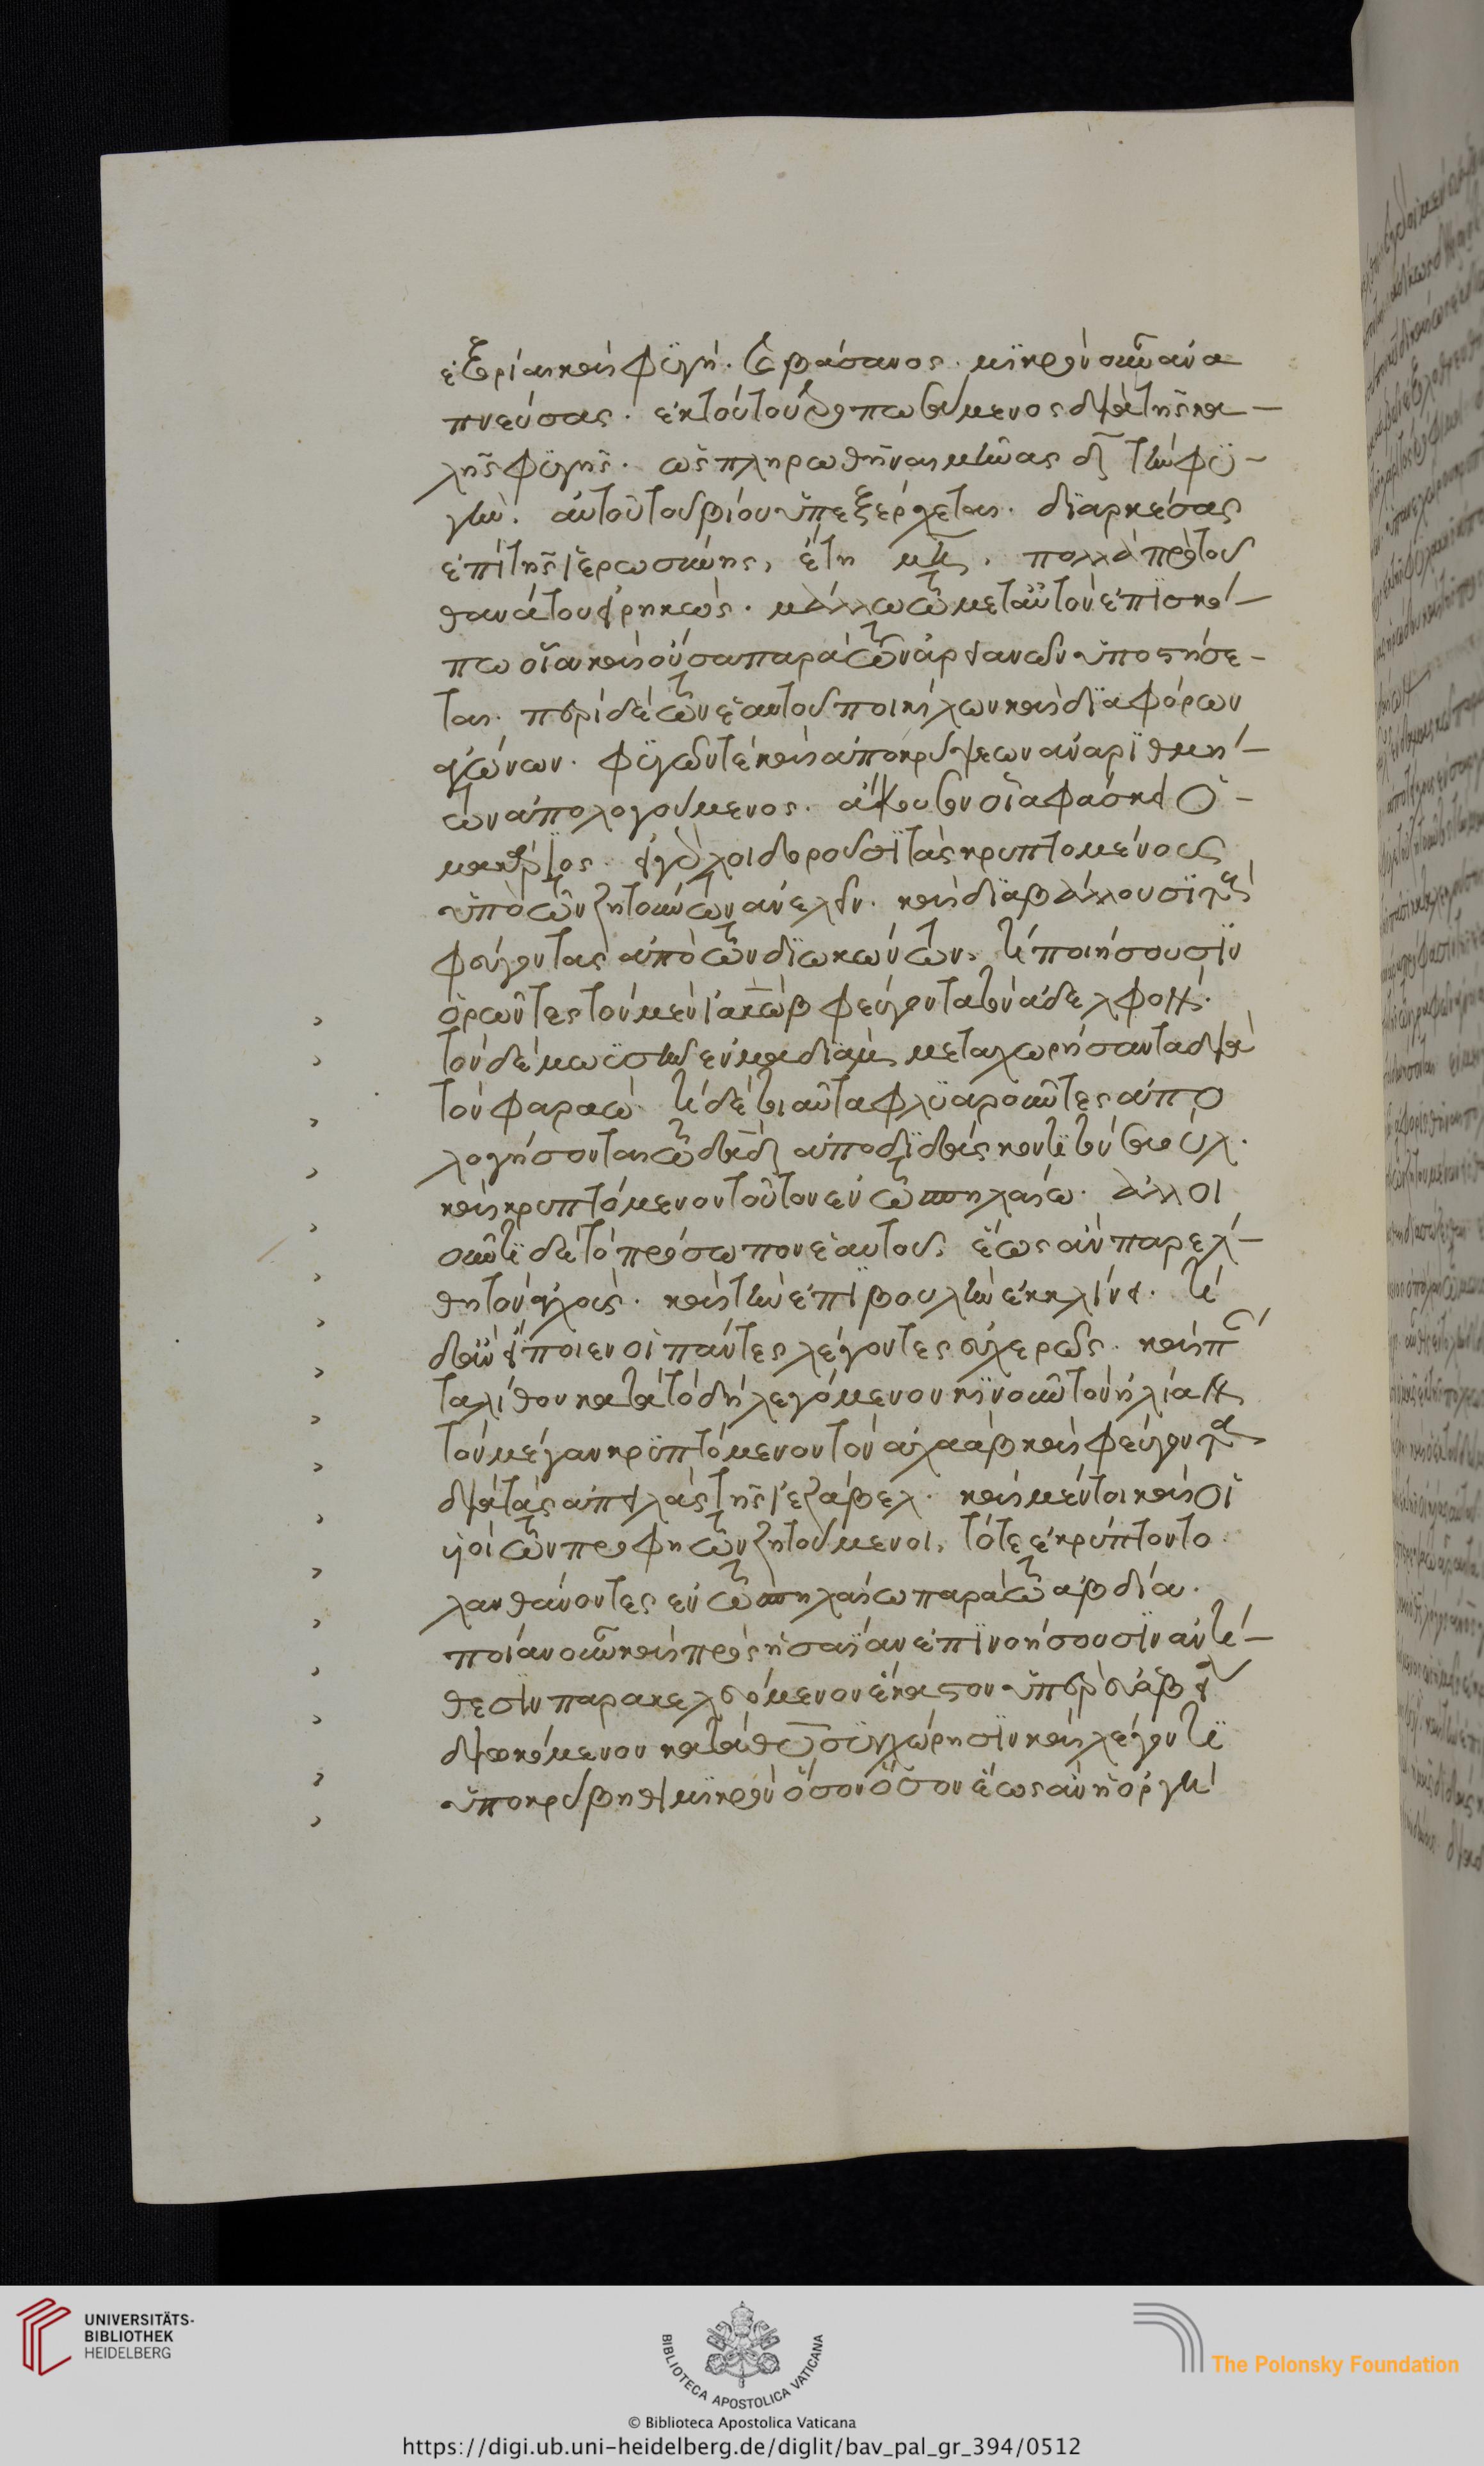 ἐξορίαι καὶ φυγή. καὶ βάσανος. μικρὸν οὖν ἀνα
πνεύσας. ἐκ τούτου
λῆς φυγῆς. ὡς πληρωθῆναι μῆνας δ τὴν φυ-
γήν. αὐτοῦ τοῦ βίου ὑπεξέρχεται. διαρκέσας
ἐπὶ τῆς ἱερωσύνης, ἔτη μϛ. πολλὰ πρὸ τοῦ
θανάτου εἰρηκὼς. μάλλω τῶ μετ' αὐτὸν ἐπισκό-
πω οἷα καὶ ὅσα παρὰ τῶν ἀρειανῶν ὑποστήσε-
ται. περὶ δὲ τῶν ἑαυτοῦ ποικίλων καὶ διαφόρων
ἀγώνων. φυγῶν τὲ καὶ ἀποκρύψεων ἀναριθμή-
των ἀπολογούμενος. ἄκουσον οἷα φάσκει ὁ
μακάριος. εἰ γὰρ λοιδοροῦσι τὰς κρυπτομένους
ὑπὸ τῶν ζητούντων ἀνελεῖν. καὶ διαβάλλουσι τοὺς
φεύγοντας ἀπὸ τῶν διωκόντων, τί ποιήσουσιν
ὁρῶντες τὸν μὲν ἰακὼβ φεύγοντα τὸν ἀδελφὸν.
τὸν δὲ μωϋσῆν ἐν μαδιὰμ μεταχωρήσαντα διὰ
τὸν φαραώ. τί δὲ τοιαῦτα φλυαροῦντες ἀπο
λογήσονται τῶ δαδ ἀποδιδράσκοντι τὸν σαούλ.
καὶ κρυπτόμενον τοῦτον ἐν τῶ σπηλαίω. ἀλλοι
οῦντι δὲ τὸ πρόσωπον ἑαυτοῦ, ἕως ἂν παρέλ-
θη τὸν ἀγχοὺς. καὶ τὴν ἐπιβουλὴν ἐκκλίνει. τί
δ' ἂν εἴποιεν οἱ πάντες λέγοντες εὐχερῶς. καὶ πάν
τα λίθον κατὰ τὸ δὴ λεγόμενον κινοῦν τὸν ἠλίαν
τὸν μέγαν κρυπτόμενον τὸν ἀχαὰβ καὶ φεύγοντα
διὰ τὰς ἀπειλὰς τῆς ἰεζάβελ. καὶ μέντοι καὶ οἱ
υἱοὶ τῶν προφητῶν ζητούμενοι, τότε ἐκρύπτοντο
λανθάνοντες ἐν τῶ σπηλαίω παρὰ τῶ ἀβδία.
ποίαν οὖν καὶ πρὸς ἡσαΐαν ἐπινοήσουσιν ἀντί-
θεσιν παρακελευόμενον ἕκαστον
διωκόμενον κατὰ θυ συγχώρησιν καὶ λέγοντι
ὑποκρύβηθι μικρὸν ὅσον ὅσον ἕως ἂν ἡ ὀργὴ
UNIVERSITÄTS-
BIBLIOTHEK
HEIDELBERG
BIBLIOTECA APOSTOLICA VATICANA
The Polonsky Foundation
© Biblioteca Apostolica Vaticana
https://digi.ub.uni-heidelberg.de/diglit/bav_pal_gr_394/0512